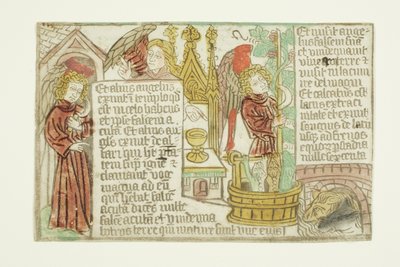 Et alius angelus
exivit de templo quod
est in celo habens
et ipse falcem a
cutā Et alius āge
lus exivit de al
tari qui hꝫ ptā
tem suꝑ ignē et
clamavit voce
magna ad eū
qui hēbat falcē
acutā dicēs mitte
falcē acutā et vindemia
botros terre qm̄ mature sunt uve eius
Et misit ange
lus falcem suā
et vindemiavit
vineā terre et
misit in lacum
ire dei magnū
Et calcatus est
lacus extra ci
vitatē et exivit
sanguis de lacu
usqꝫ ad frenos
equoꝝ ꝑ stadia
mille sexcenta